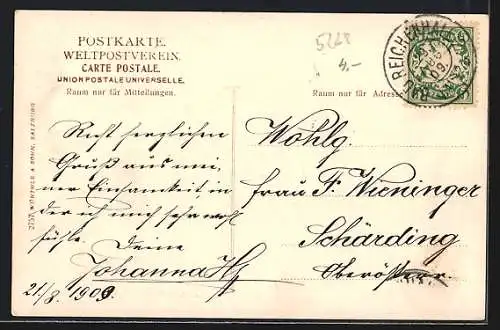 POSTKARTE.
WELTPOSTVEREIN.
CARTE POSTALE.
UNION POSTALE UNIVERSELLE.
Raum nur für Mitteilungen.
Raum nur für Adresse
5228
4.-
REICHENHALL
BAD
2757 WÜRTHLE & SOHN, SALZBURG
Recht herzlichen
Gruß aus mei-
ner Einsamkeit in
der ich mich sehr wohl
fühle. Deine
Johanna
21./8. 1909.
Wohlg.
Frau F. Wieninger
Schärding
Oberösterr.